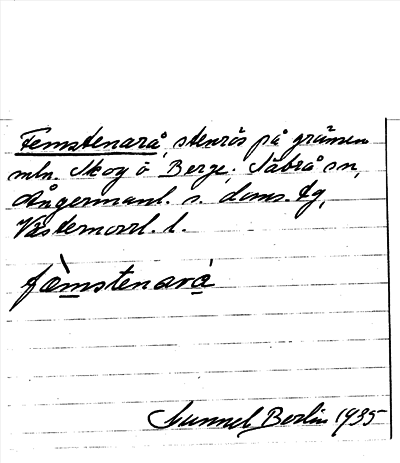 Femstenarå, stenrös på gränsen
mln. Skog o Berge; Nåbrå sn,
Ångermanl. s. doms. tg,
Västernorrl. l.
fämstenará
Nunnel Berlin 1935